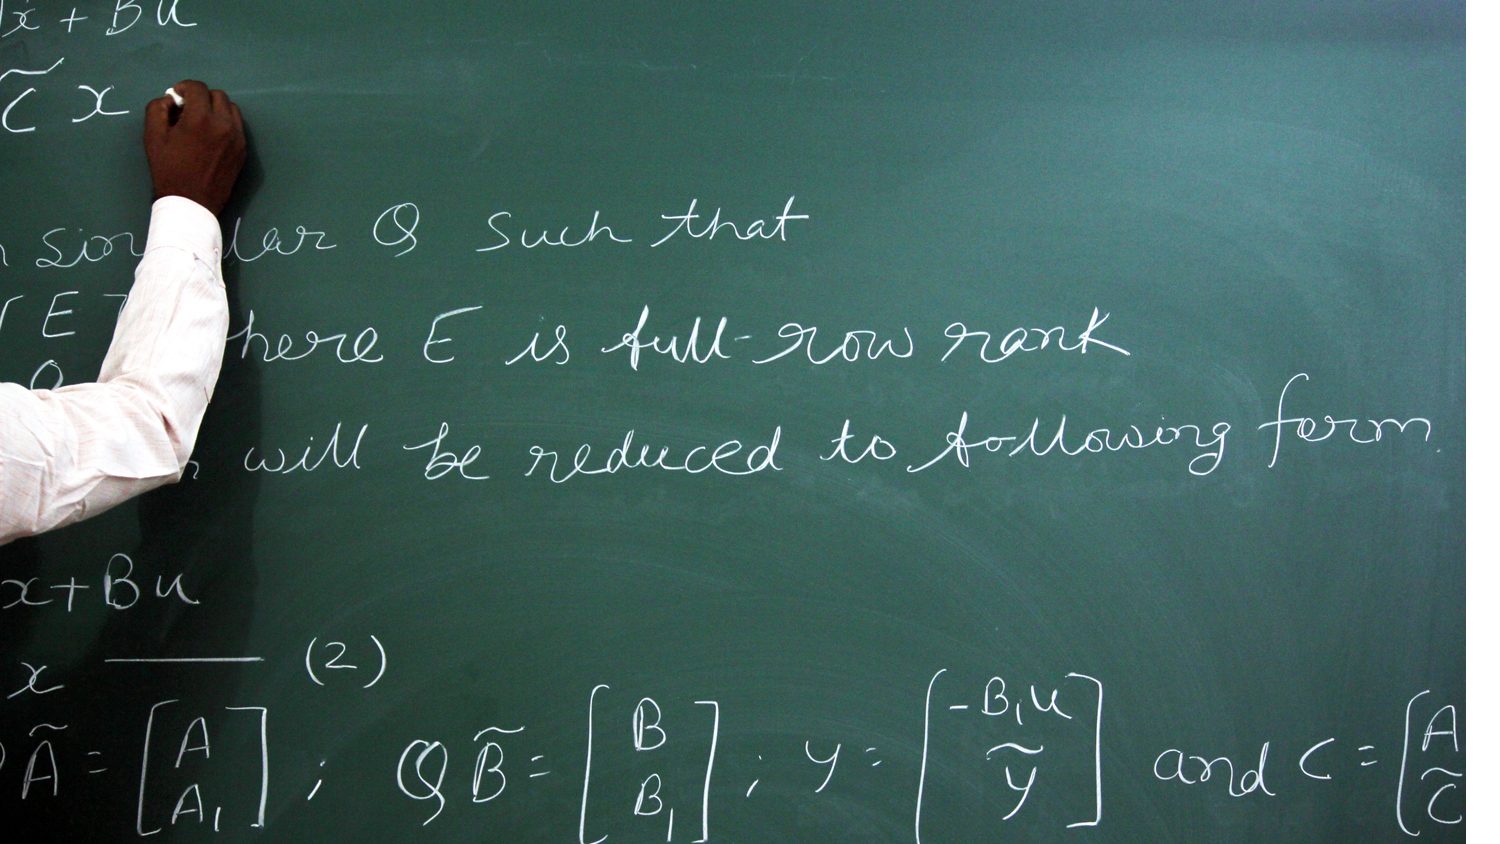 ẋ + Bu
C̃ x
lar Q such that
[E] here E is full-row rank
0
will be reduced to following form.
x + Bu
x ——— (2)
Ã = [A A₁] ; QB̃ = [B B₁] ; y = [-B₁u ỹ] and C = [A C̃